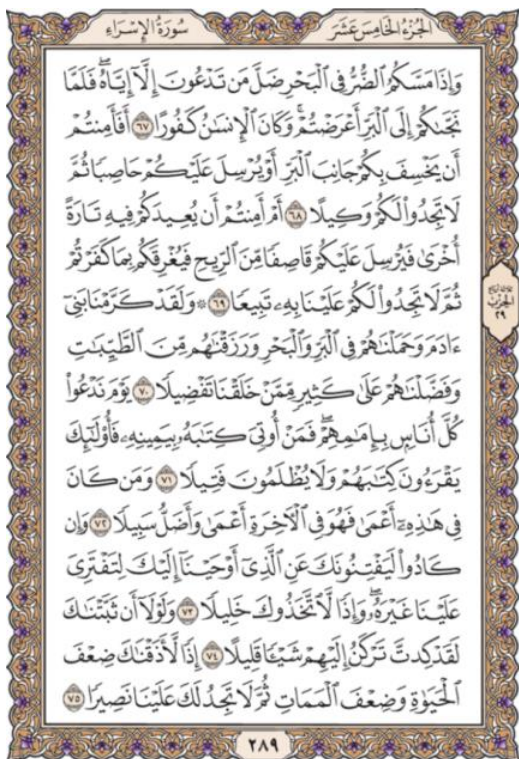 الجُزْءُ الخَامِسَ عَشَرَ
سُورَةُ الإِسْرَاءِ
وَإِذَا مَسَّكُمُ ٱلضُّرُّ فِي ٱلۡبَحۡرِ ضَلَّ مَن تَدۡعُونَ إِلَّآ إِيَّاهُۖ فَلَمَّا
نَجَّىٰكُمۡ إِلَى ٱلۡبَرِّ أَعۡرَضۡتُمۡۚ وَكَانَ ٱلۡإِنسَٰنُ كَفُورًا ٦٧ أَفَأَمِنتُمۡ
أَن يَخۡسِفَ بِكُمۡ جَانِبَ ٱلۡبَرِّ أَوۡ يُرۡسِلَ عَلَيۡكُمۡ حَاصِبٗا ثُمَّ
لَا تَجِدُواْ لَكُمۡ وَكِيلًا ٦٨ أَمۡ أَمِنتُمۡ أَن يُعِيدَكُمۡ فِيهِ تَارَةً
أُخۡرَىٰ فَيُرۡسِلَ عَلَيۡكُمۡ قَاصِفٗا مِّنَ ٱلرِّيحِ فَيُغۡرِقَكُم بِمَا كَفَرۡتُمۡ
ثُمَّ لَا تَجِدُواْ لَكُمۡ عَلَيۡنَا بِهِۦ تَبِيعٗا ٦٩ ۞ وَلَقَدۡ كَرَّمۡنَا بَنِيٓ
ءَادَمَ وَحَمَلۡنَٰهُمۡ فِي ٱلۡبَرِّ وَٱلۡبَحۡرِ وَرَزَقۡنَٰهُم مِّنَ ٱلطَّيِّبَٰتِ
وَفَضَّلۡنَٰهُمۡ عَلَىٰ كَثِيرٖ مِّمَّنۡ خَلَقۡنَا تَفۡضِيلٗا ٧٠ يَوۡمَ نَدۡعُواْ
كُلَّ أُنَاسِۭ بِإِمَٰمِهِمۡۖ فَمَنۡ أُوتِيَ كِتَٰبَهُۥ بِيَمِينِهِۦ فَأُوْلَٰٓئِكَ
يَقۡرَءُونَ كِتَٰبَهُمۡ وَلَا يُظۡلَمُونَ فَتِيلٗا ٧١ وَمَن كَانَ
فِي هَٰذِهِۦٓ أَعۡمَىٰ فَهُوَ فِي ٱلۡأٓخِرَةِ أَعۡمَىٰ وَأَضَلُّ سَبِيلٗا ٧٢ وَإِن
كَادُواْ لَيَفۡتِنُونَكَ عَنِ ٱلَّذِيٓ أَوۡحَيۡنَآ إِلَيۡكَ لِتَفۡتَرِيَ
عَلَيۡنَا غَيۡرَهُۥۖ وَإِذٗا لَّٱتَّخَذُوكَ خَلِيلٗا ٧٣ وَلَوۡلَآ أَن ثَبَّتۡنَٰكَ
لَقَدۡ كِدتَّ تَرۡكَنُ إِلَيۡهِمۡ شَيۡـٔٗا قَلِيلًا ٧٤ إِذٗا لَّأَذَقۡنَٰكَ ضِعۡفَ
ٱلۡحَيَوٰةِ وَضِعۡفَ ٱلۡمَمَاتِ ثُمَّ لَا تَجِدُ لَكَ عَلَيۡنَا نَصِيرٗا ٧٥
الحِزْبُ
٢٩
٢٨٩